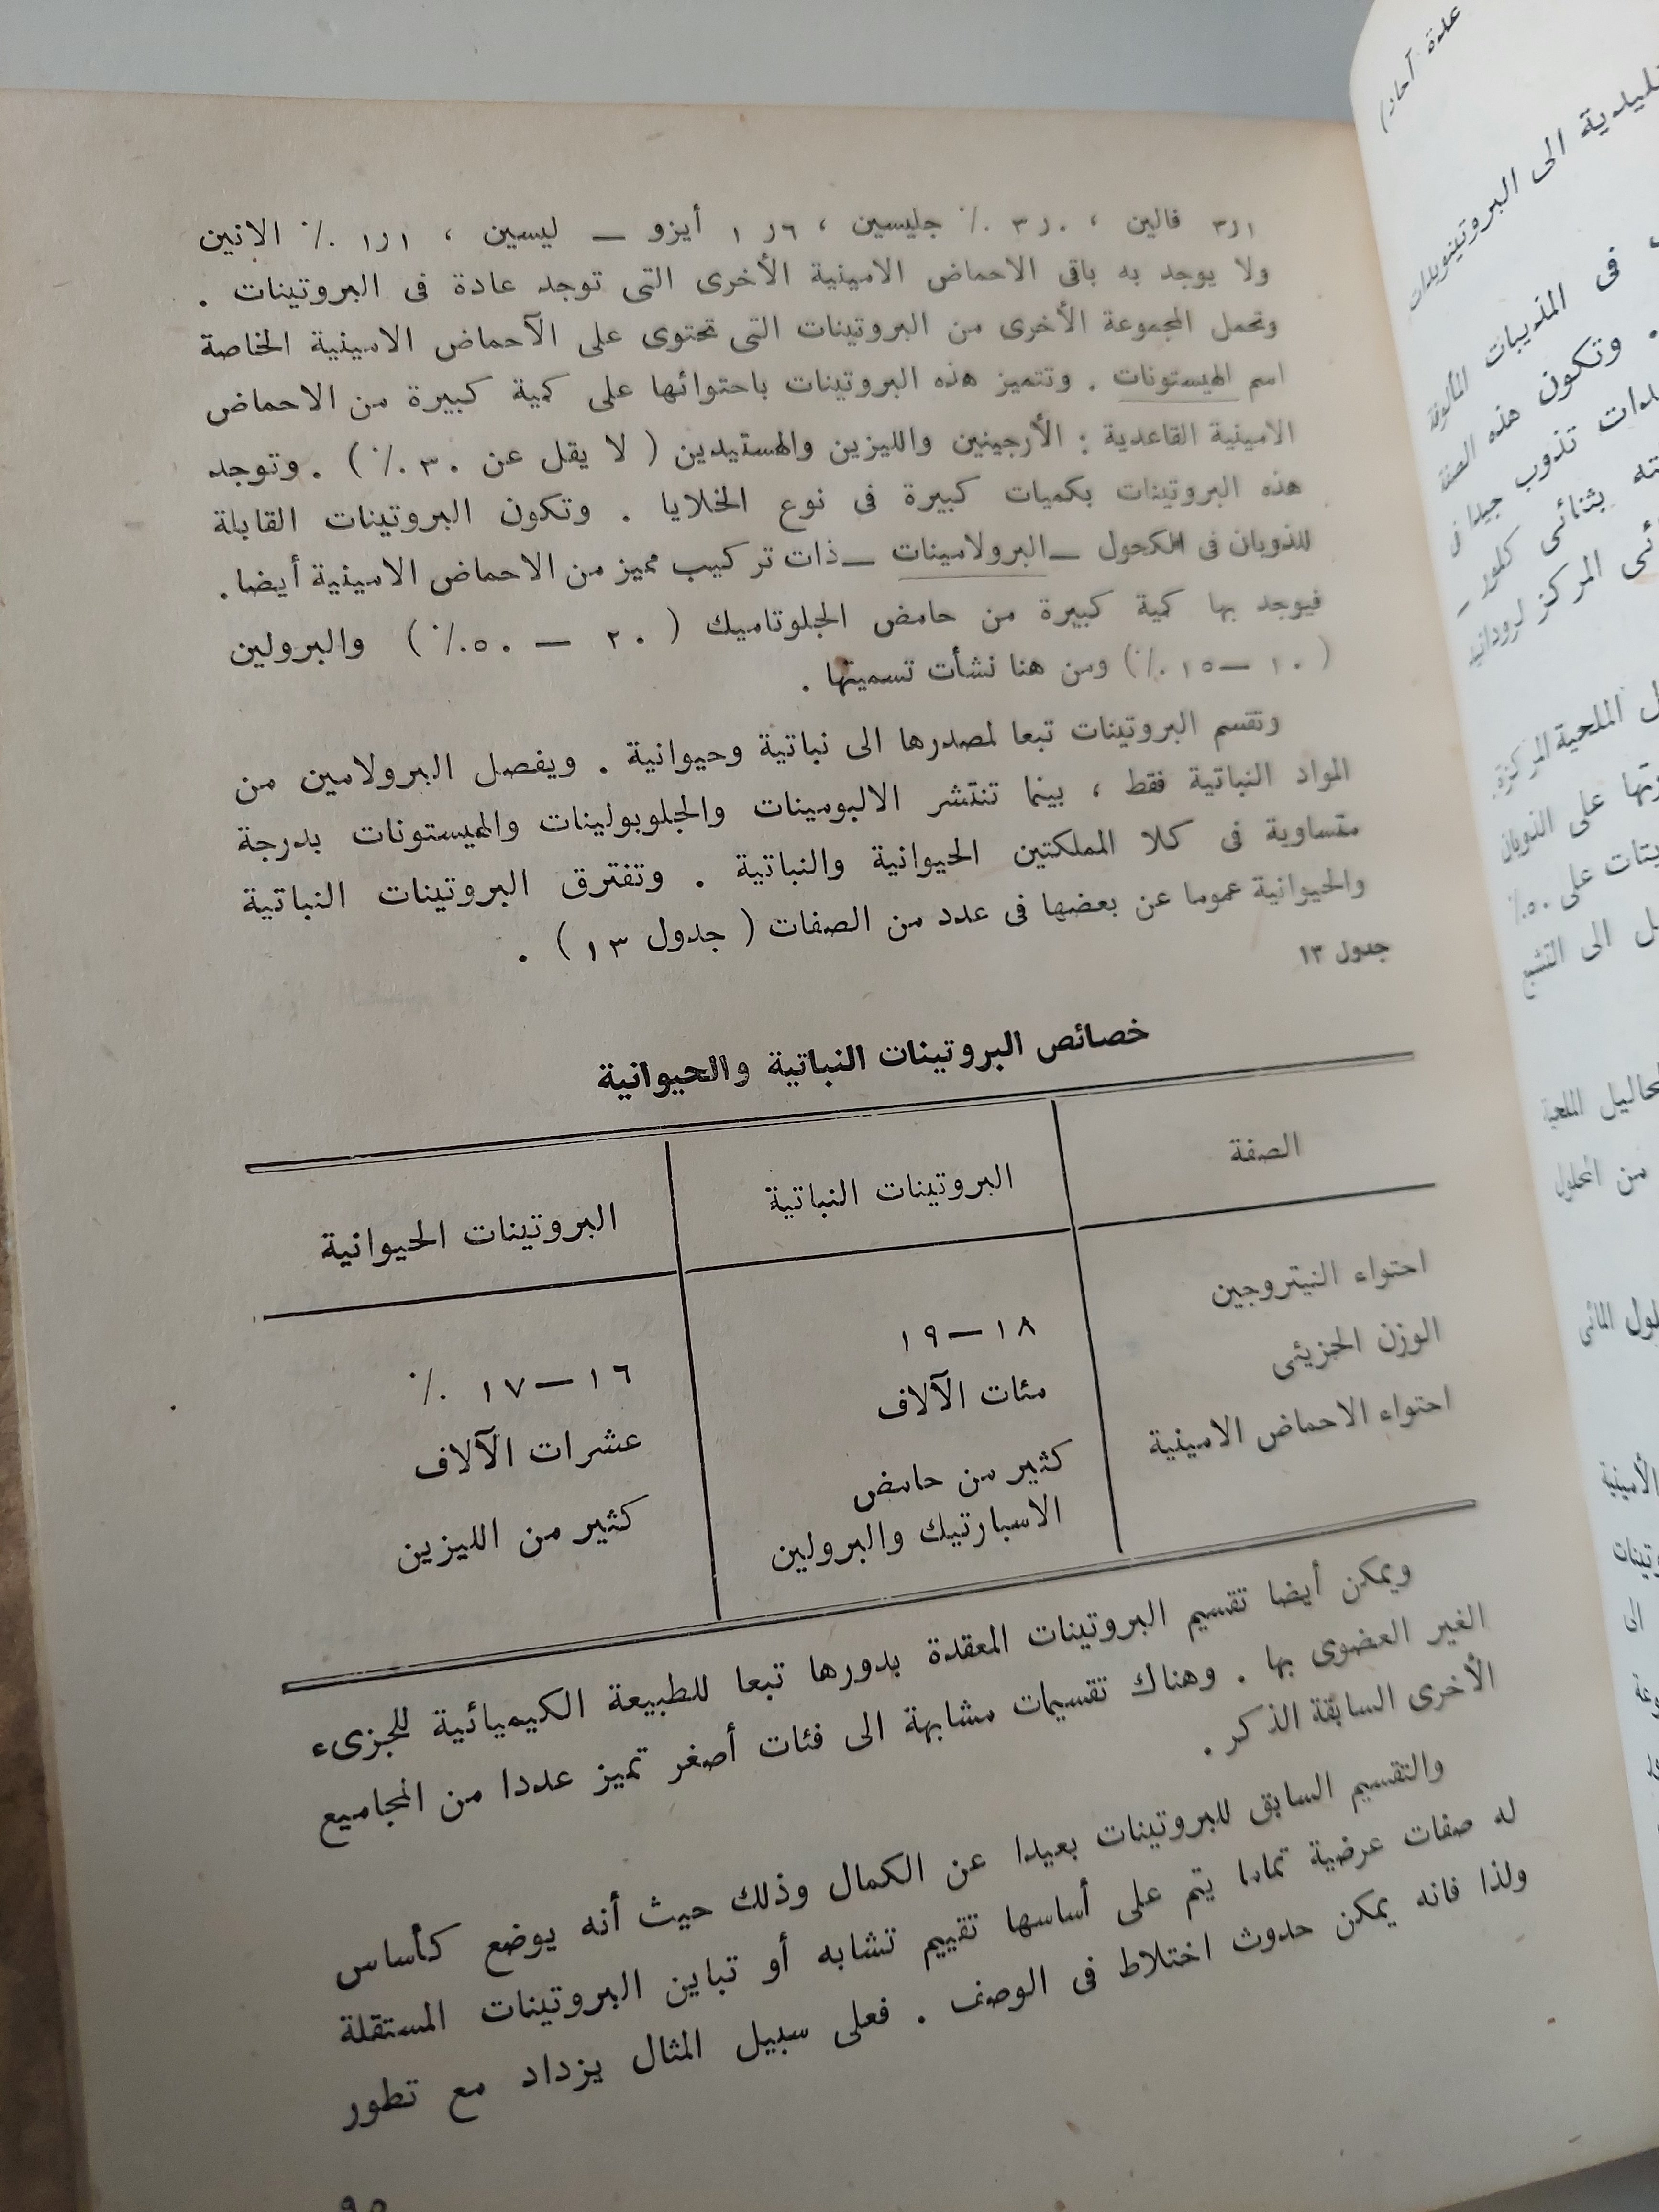 ٣ر١ فالين ، ٣ر٠ ٪ جليسين ، ١ر٦ أيزو — ليسين ، ١ر١ ٪ الانين
ولا يوجد به باقى الاحماض الامينية الأخرى التى توجد عادة فى البروتينات .
وتحمل المجموعة الأخرى من البروتينات التى تحتوى على الآحماض الامينية الخاصة
اسم الهيستونات . وتتميز هذه البروتينات باحتوائها على كمية كبيرة من الاحماض
الامينية القاعدية : الأرجينين والليزين والهستيدين ( لا يقل عن ٣٠٪ ) . وتوجد
هذه البروتينات بكميات كبيرة فى نوع الخلايا . وتكون البروتينات القابلة
للذوبان فى الكحول — البرولامينات — ذات تركيب مميز من الاحماض الامينية أيضا .
فيوجد بها كمية كبيرة من حامض الجلوتاميك ( ٢٠ — ٥٠٪ ) والبرولين
( ١٠ — ١٥٪ ) ومن هنا نشأت تسميتها .
وتقسم البروتينات تبعا لمصدرها الى نباتية وحيوانية . ويفصل البرولامين من
المواد النباتية فقط ، بينما تنتشر الالبومينات والجلوبولينات والهيستونات بدرجة
متساوية فى كلا المملكتين الحيوانية والنباتية . وتفترق البروتينات النباتية
والحيوانية عموما عن بعضها فى عدد من الصفات ( جدول ١٣ ) .
جدول ١٣
خصائص البروتينات النباتية والحيوانية
الصفة البروتينات النباتية البروتينات الحيوانية
احتواء النيتروجين ١٨—١٩ ١٦—١٧ ٪
الوزن الجزيئى مئات الآلاف عشرات الآلاف
احتواء الاحماض الامينية كثير من حامض كثير من الليزين
الاسبارتيك والبرولين
ويمكن أيضا تقسيم البروتينات المعقدة بدورها تبعا للطبيعة الكيميائية للجزىء
الغير العضوى بها . وهناك تقسيمات مشابهة الى فئات أصغر تميز عددا من المجاميع
الأخرى السابقة الذكر .
والتقسيم السابق للبروتينات بعيدا عن الكمال وذلك حيث أنه يوضع كأساس
له صفات عرضية تماما يتم على أساسها تقييم تشابه أو تباين البروتينات المستقلة
ولذا فانه يمكن حدوث اختلاط فى الوصف . فعلى سبيل المثال يزداد مع تطور
٩٥
عدة آحاد)
الى البروتينويدات
فى المذيبات المألوفة
. وتكون هذه الصفة
تذوب جيدا
بثنائى كلور —
المركز
الملحية المركزة.
على الذوبان
على ٥٠٪
الى التشبع
الملحية
من المحلول
المائى
الأمينية
الى